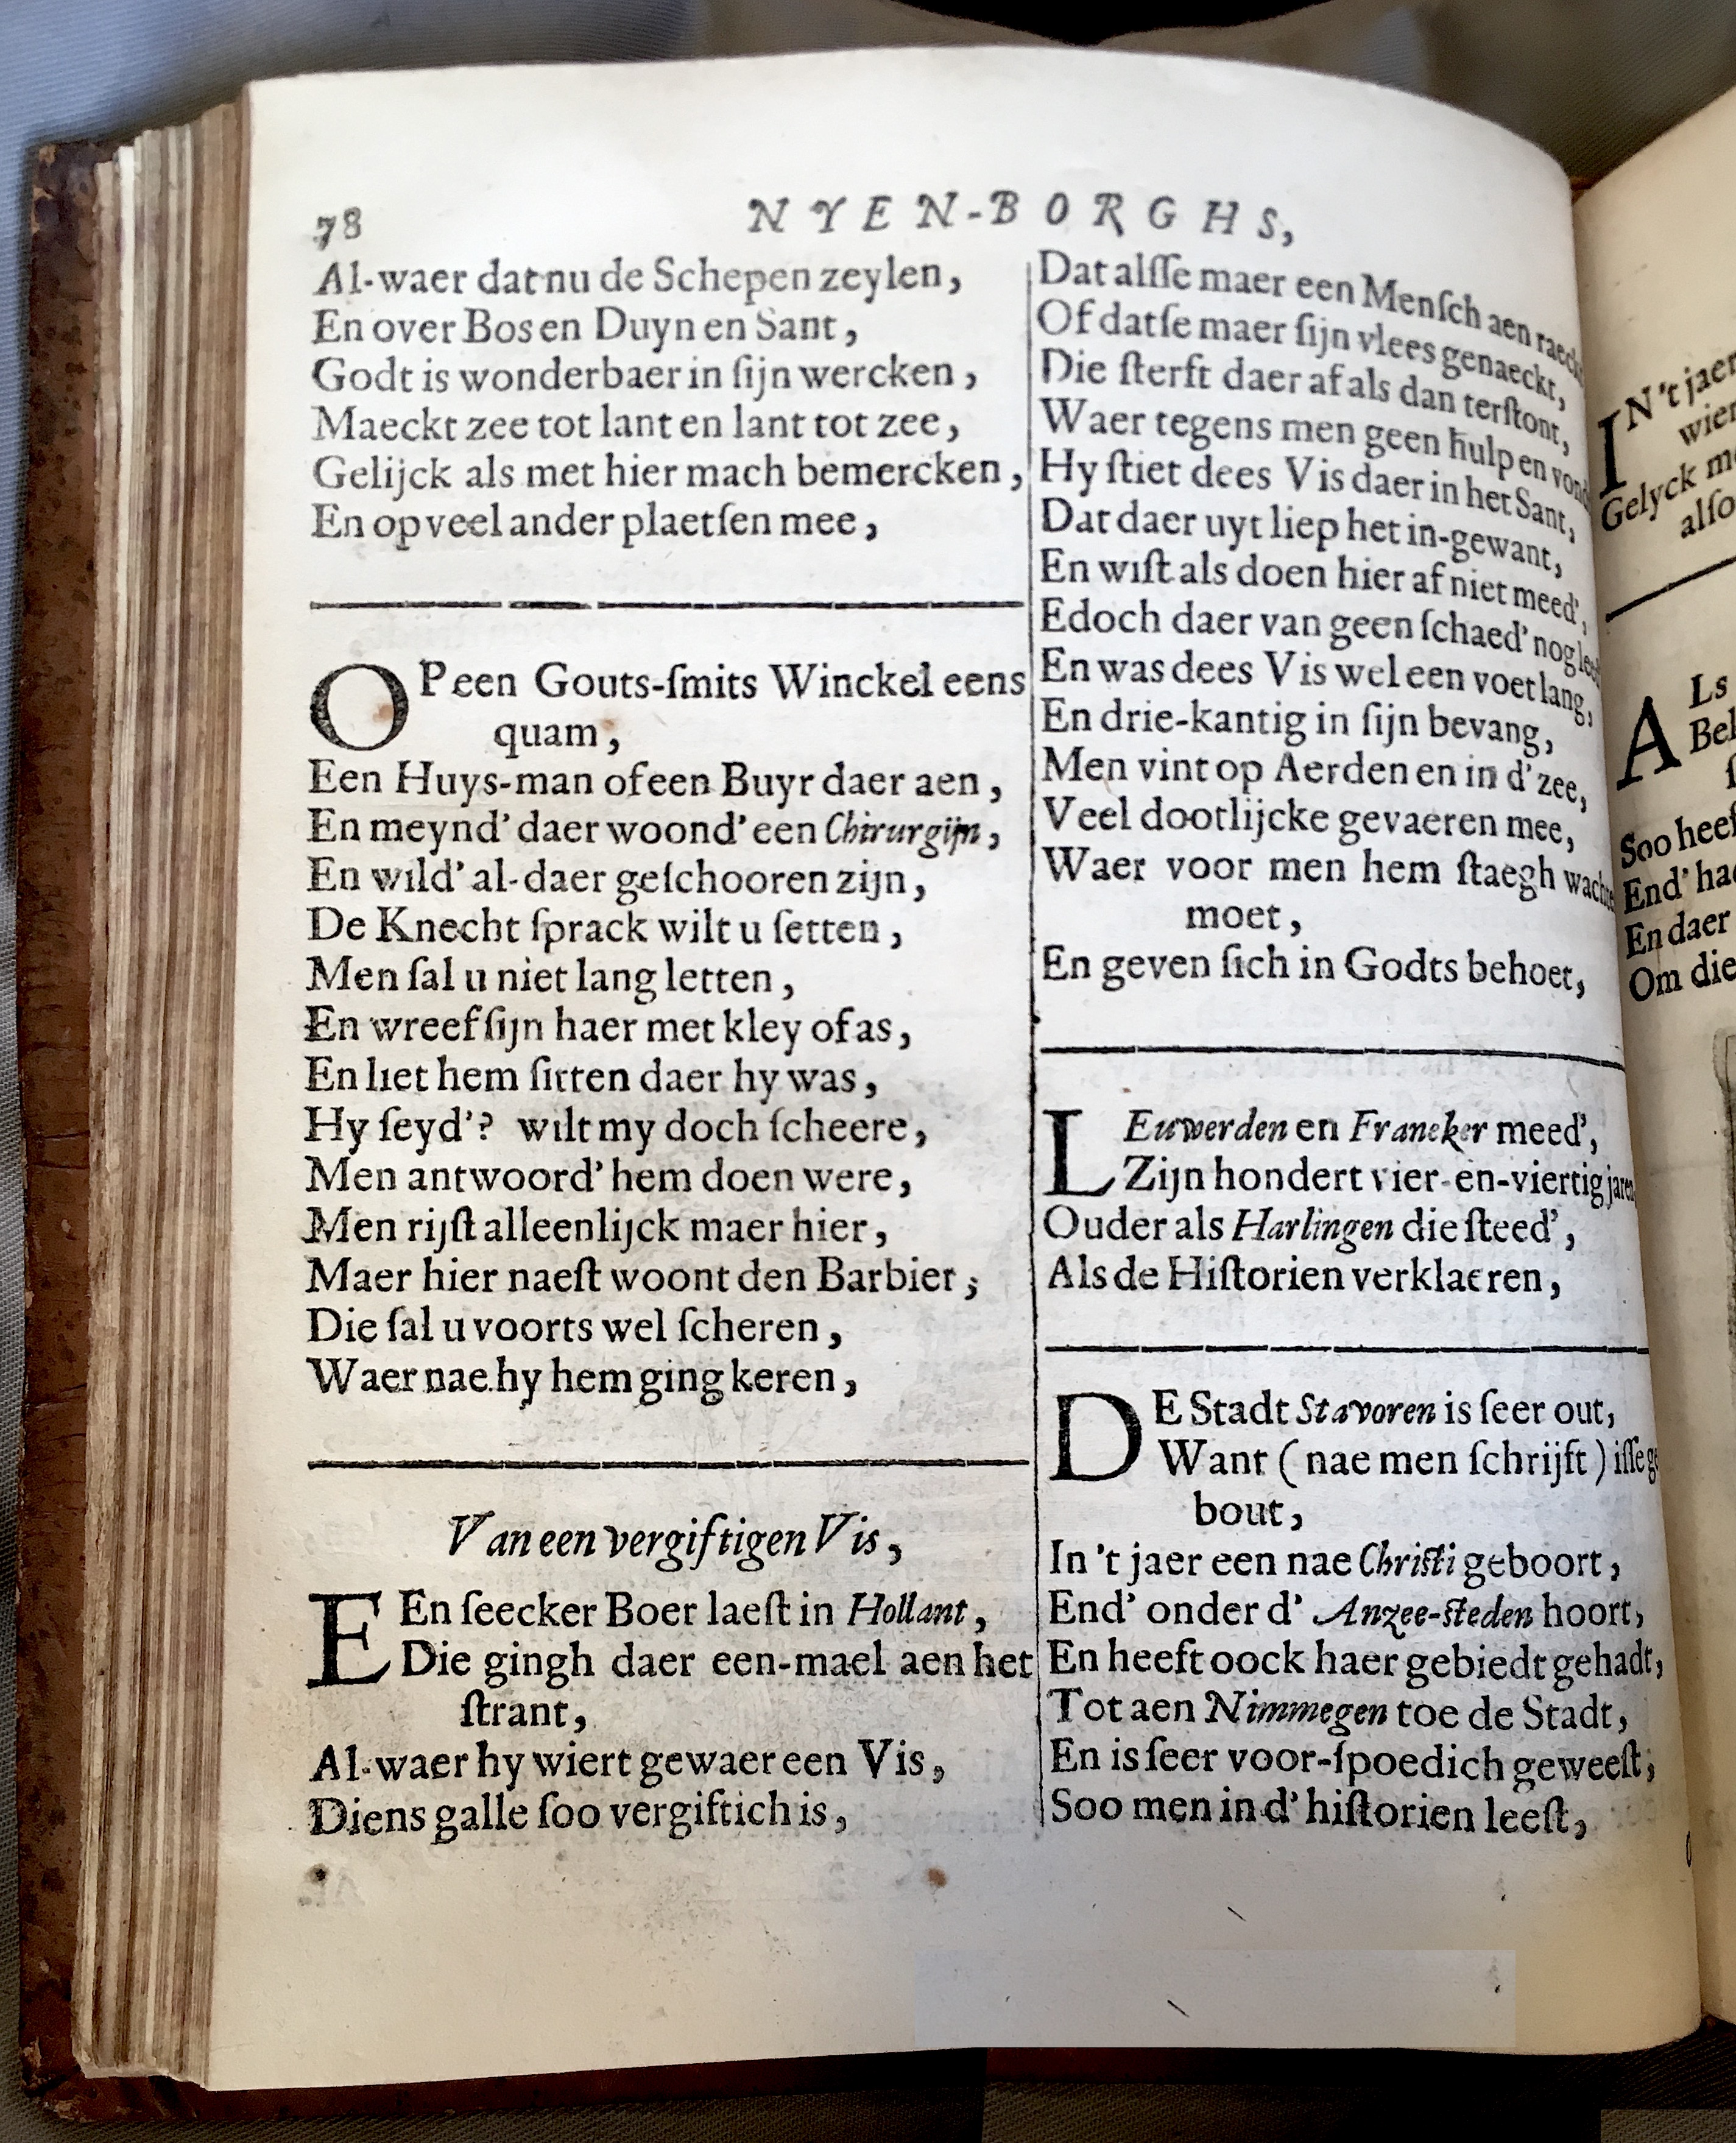 78 NYEN-BORGHS,
Al-waer dat nu de Schepen zeylen,
En over Bos en Duyn en Sant,
Godt is wonderbaer in ſijn wercken,
Maeckt zee tot lant en lant tot zee,
Gelijck als met hier mach bemercken,
En op veel ander plaetſen mee,
OP een Gouts-ſmits Winckel eens
quam,
Een Huys-man of een Buyr daer aen,
En meynd' daer woond' een Chirurgijn,
En wild' al-daer geſchooren zijn,
De Knecht ſprack wilt u ſetten,
Men ſal u niet lang letten,
En wreef ſijn haer met kley of as,
En liet hem ſitten daer hy was,
Hy ſeyd'? wilt my doch ſcheere,
Men antwoord' hem doen were,
Men rijſt alleenlijck maer hier,
Maer hier naeſt woont den Barbier;
Die ſal u voorts wel ſcheren,
Waer nae hy hem ging keren,
Van een vergiftigen Vis,
EEn ſeecker Boer laeſt in Hollant,
Die gingh daer een-mael aen het
ſtrant,
Al-waer hy wiert gewaer een Vis,
Diens galle ſoo vergiftich is,
Dat alſſe maer een Menſch aen
Of datſe maer ſijn vlees genaeckt,
Die ſterft daer af als dan terſtont,
Waer tegens men geen hulp en
Hy ſtiet dees Vis daer in het Sant,
Dat daer uyt liep het in-gewant,
En wiſt als doen hier af niet meed',
Edoch daer van geen ſchaed' nog
En was dees Vis wel een voet lang,
En drie-kantig in ſijn bevang,
Men vint op Aerden en in d' zee,
Veel dootlijcke gevaeren mee,
Waer voor men hem ſtaegh
moet,
En geven ſich in Godts behoet,
LEuwerden en Franeker meed',
Zijn hondert vier-en-viertig
Ouder als Harlingen die ſteed',
Als de Hiſtorien verklaeren,
DE Stadt Stavoren is ſeer out,
Want (nae men ſchrijft) iſſe
bout,
In 't jaer een nae Chriſti geboort,
End' onder d' Anzee-ſteden hoort,
En heeft oock haer gebiedt gehadt,
Tot aen Nimmegen toe de Stadt,
En is ſeer voor-ſpoedich geweeſt,
Soo men in d' hiſtorien leeſt,
IN 't
Gelyck
ALs
Soo
End'
En daer
Om die